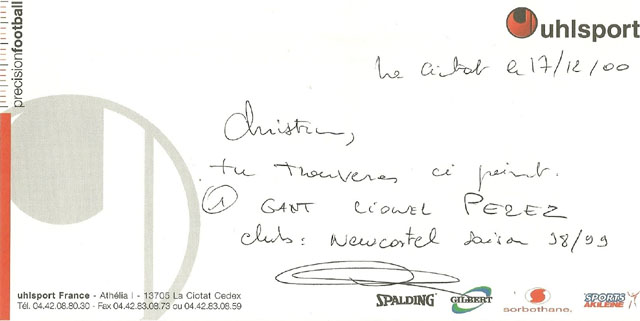 precisionfootball
uhlsport
La Ciotat le 17/12/00
Christian,
tu trouveras ci joint.
① GANT Lionel PEREZ
club: Newcastel saison 98/99
uhlsport France - Athélia I - 13705 La Ciotat Cedex
Tél. 04.42.08.80.30 - Fax 04.42.83.08.73 ou 04.42.83.08.59
SPALDING
GILBERT
sorbothane.
SPORTS
AKILEINE